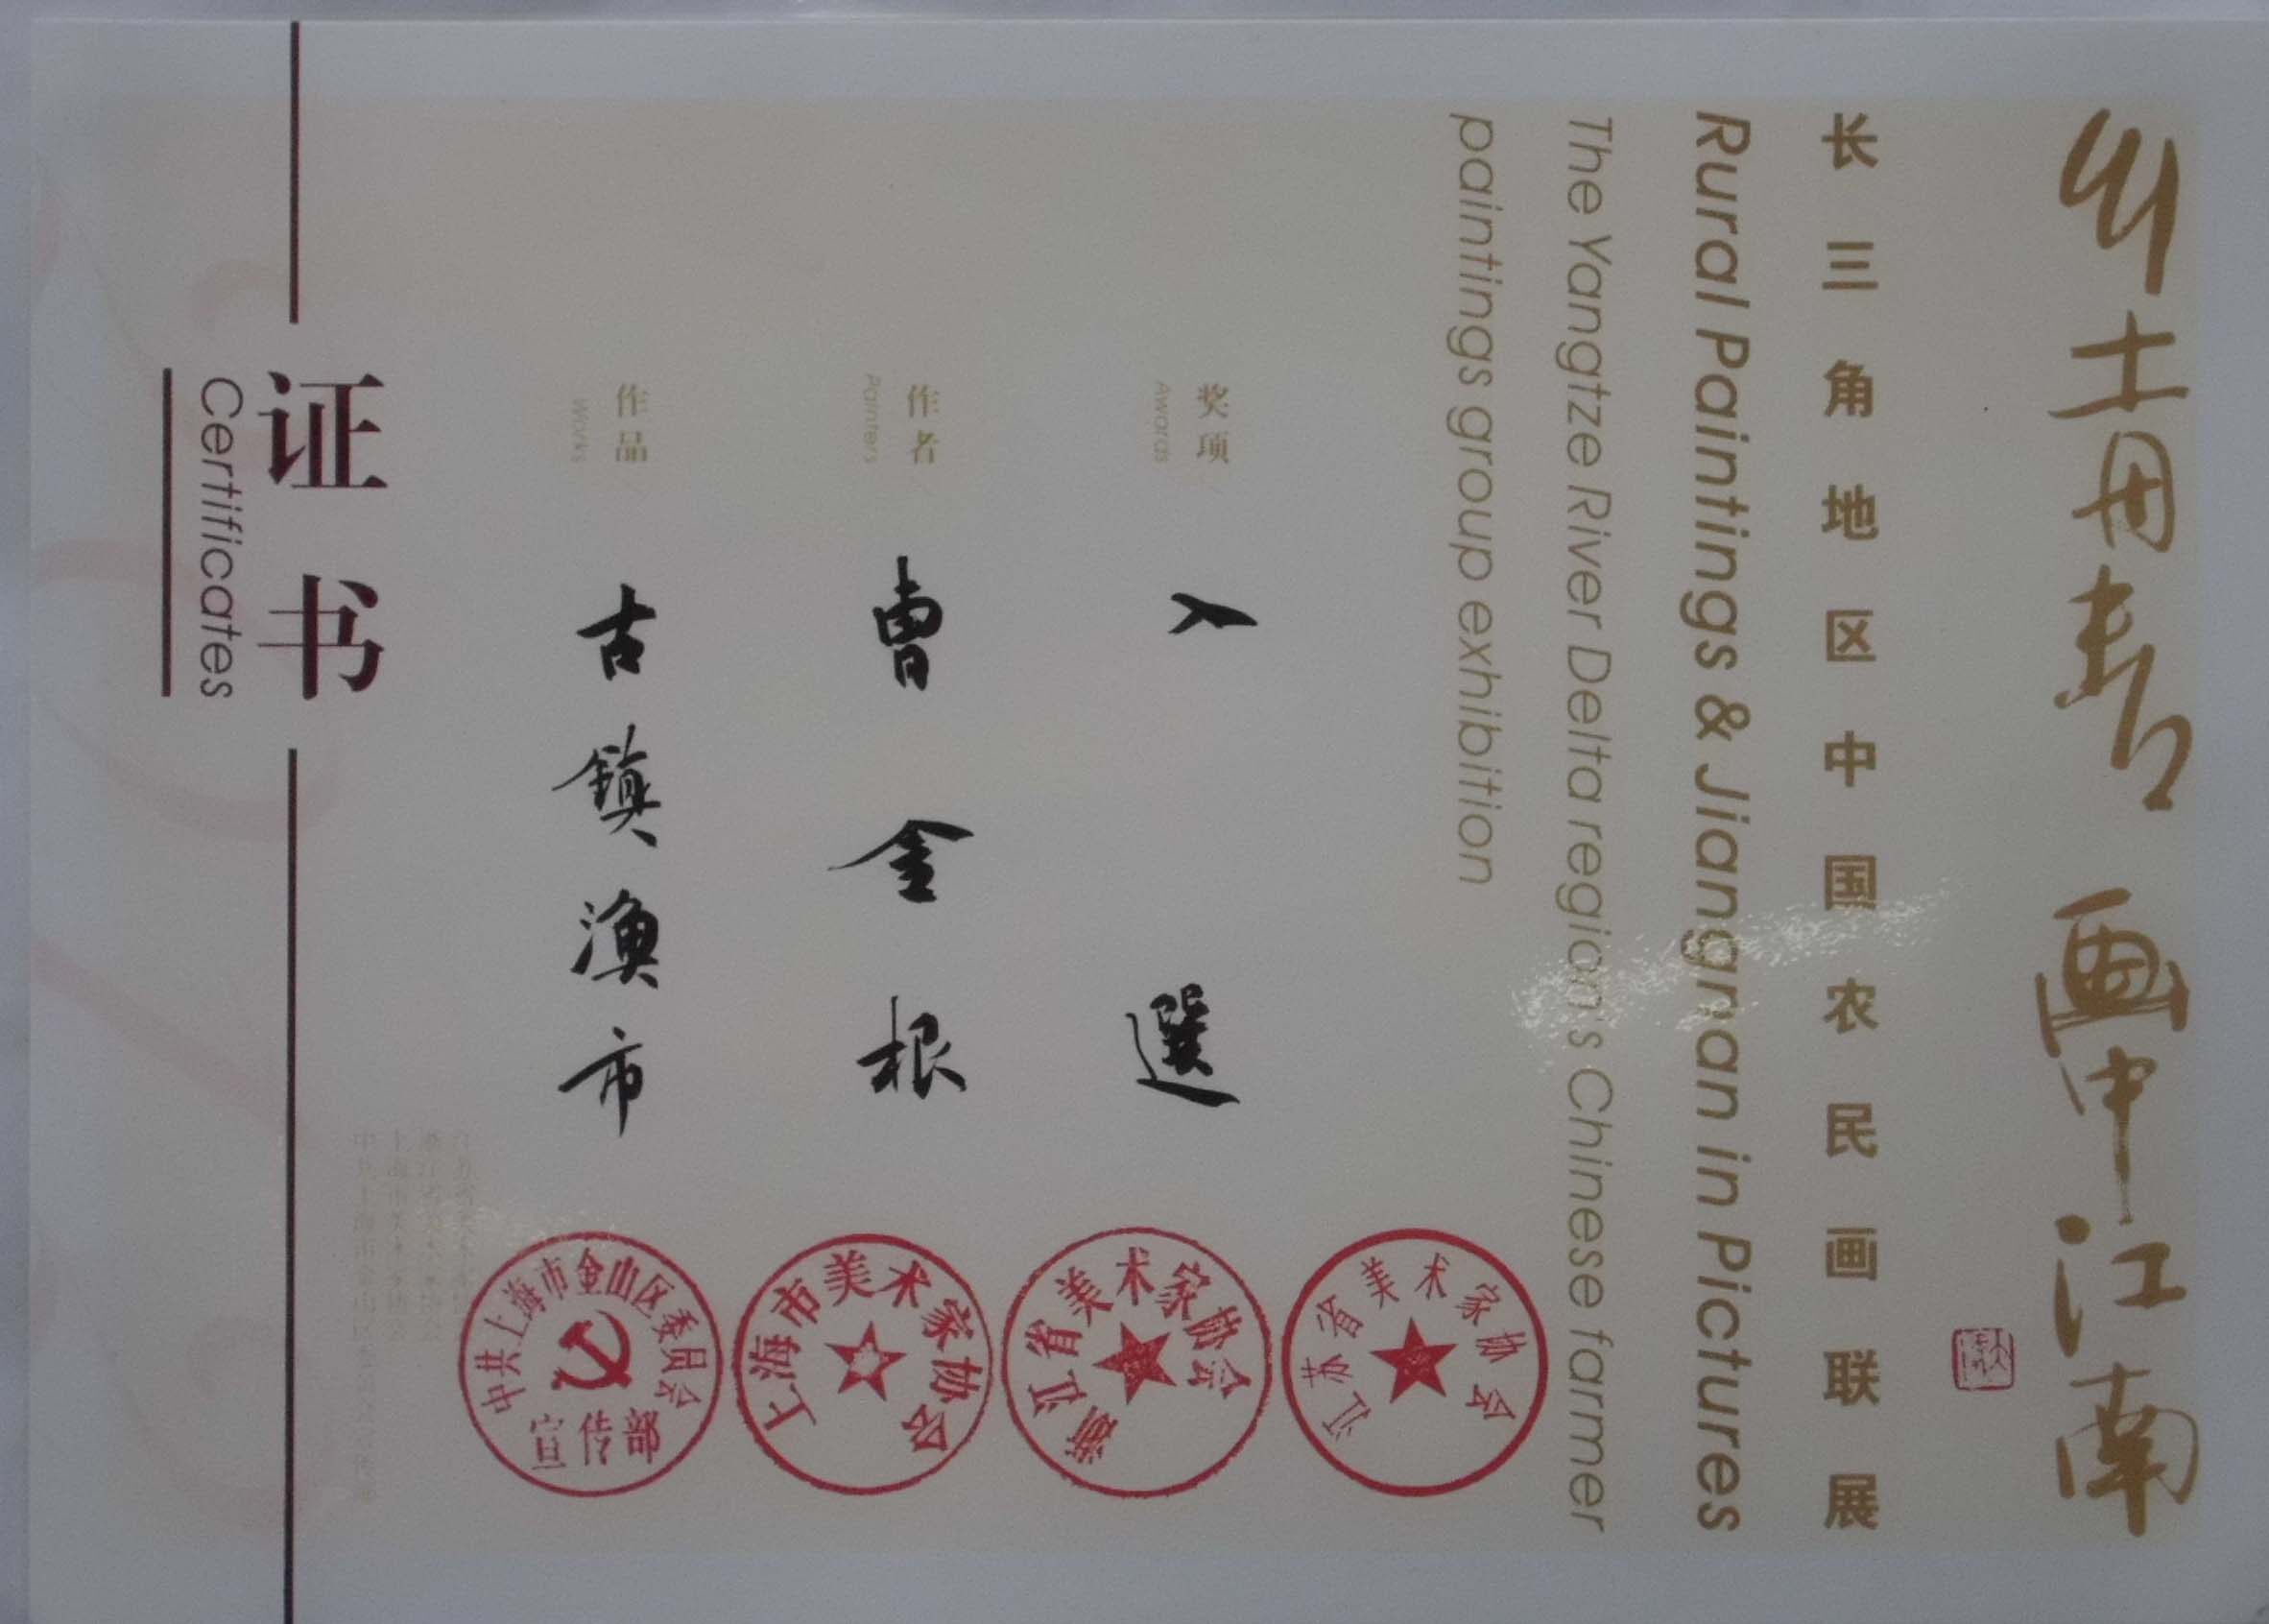 乡土丹青 画中江南
长三角地区中国农民画联展
Rural Paintings & Jiangnan in Pictures
The Yangtze River Delta region's Chinese farmer
paintings group exhibition
奖项
Awards
入選
作者
Painters
曹金根
作品
Works
古鎮漁市
证书
Certificates
中共上海市金山区委员会
宣传部
上海市美术家协会
浙江省美术家协会
江苏省美术家协会